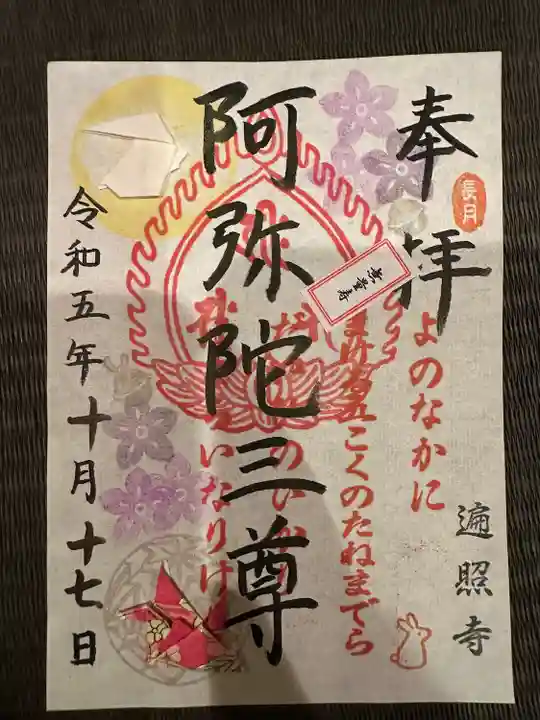 奉拝
長月
無量寿
よのなかに
こくのたねまでら
いなりけ
阿弥陀三尊
遍照寺
令和五年十月十七日